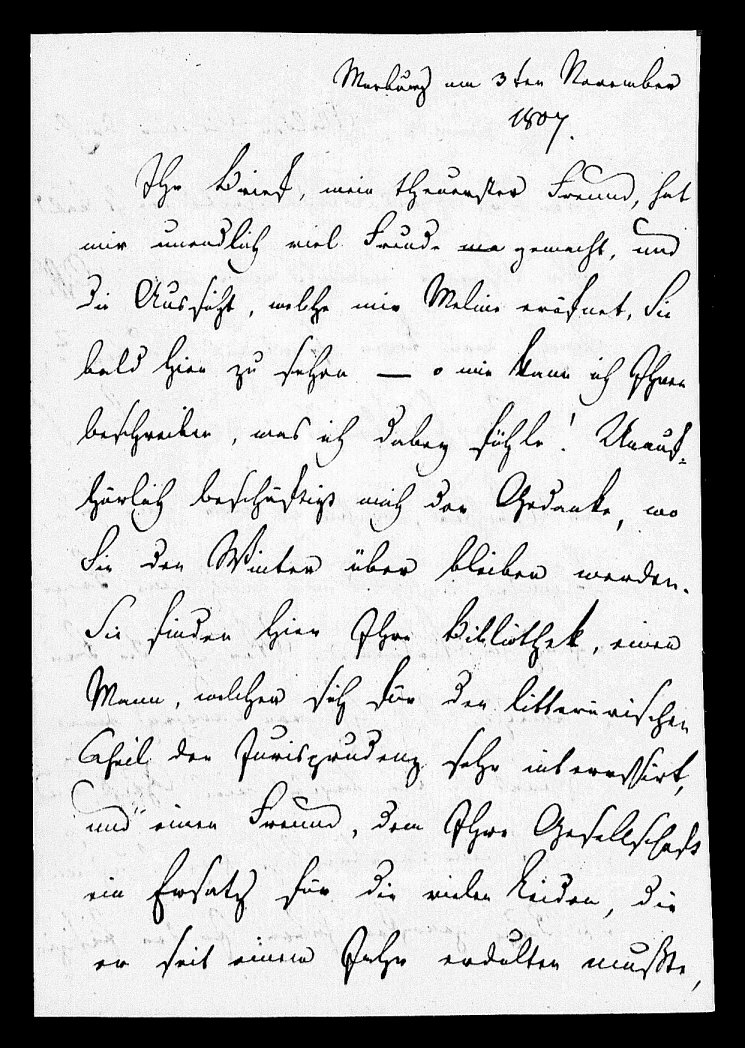 Marburg am 3ten November
1807.
Ihr Brief, mein theuerster Freund, hat
mir unendlich viel Freude gemacht, und
die Aussicht, welche mir Meline eröfnet, Sie
bald hier zu sehen — o wie kann ich Ihnen
beschreiben, was ich dabey fühle! Unauf-
hörlich beschäftigt mich der Gedanke, wo
Sie den Winter über bleiben werden.
Sie finden hier Ihre Bibliothek, einen
Mann, welcher sich für den litterärischen
Theil der Jurisprudenz sehr interessirt,
und einen Freund, dem Ihre Gesellschaft
ein Ersatz für die vielen Leiden, die
er seit einem Jahr erdulten mußte,